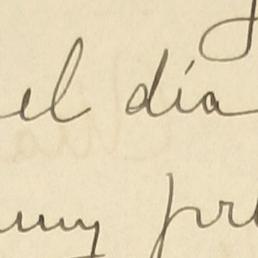 el día
muy pr